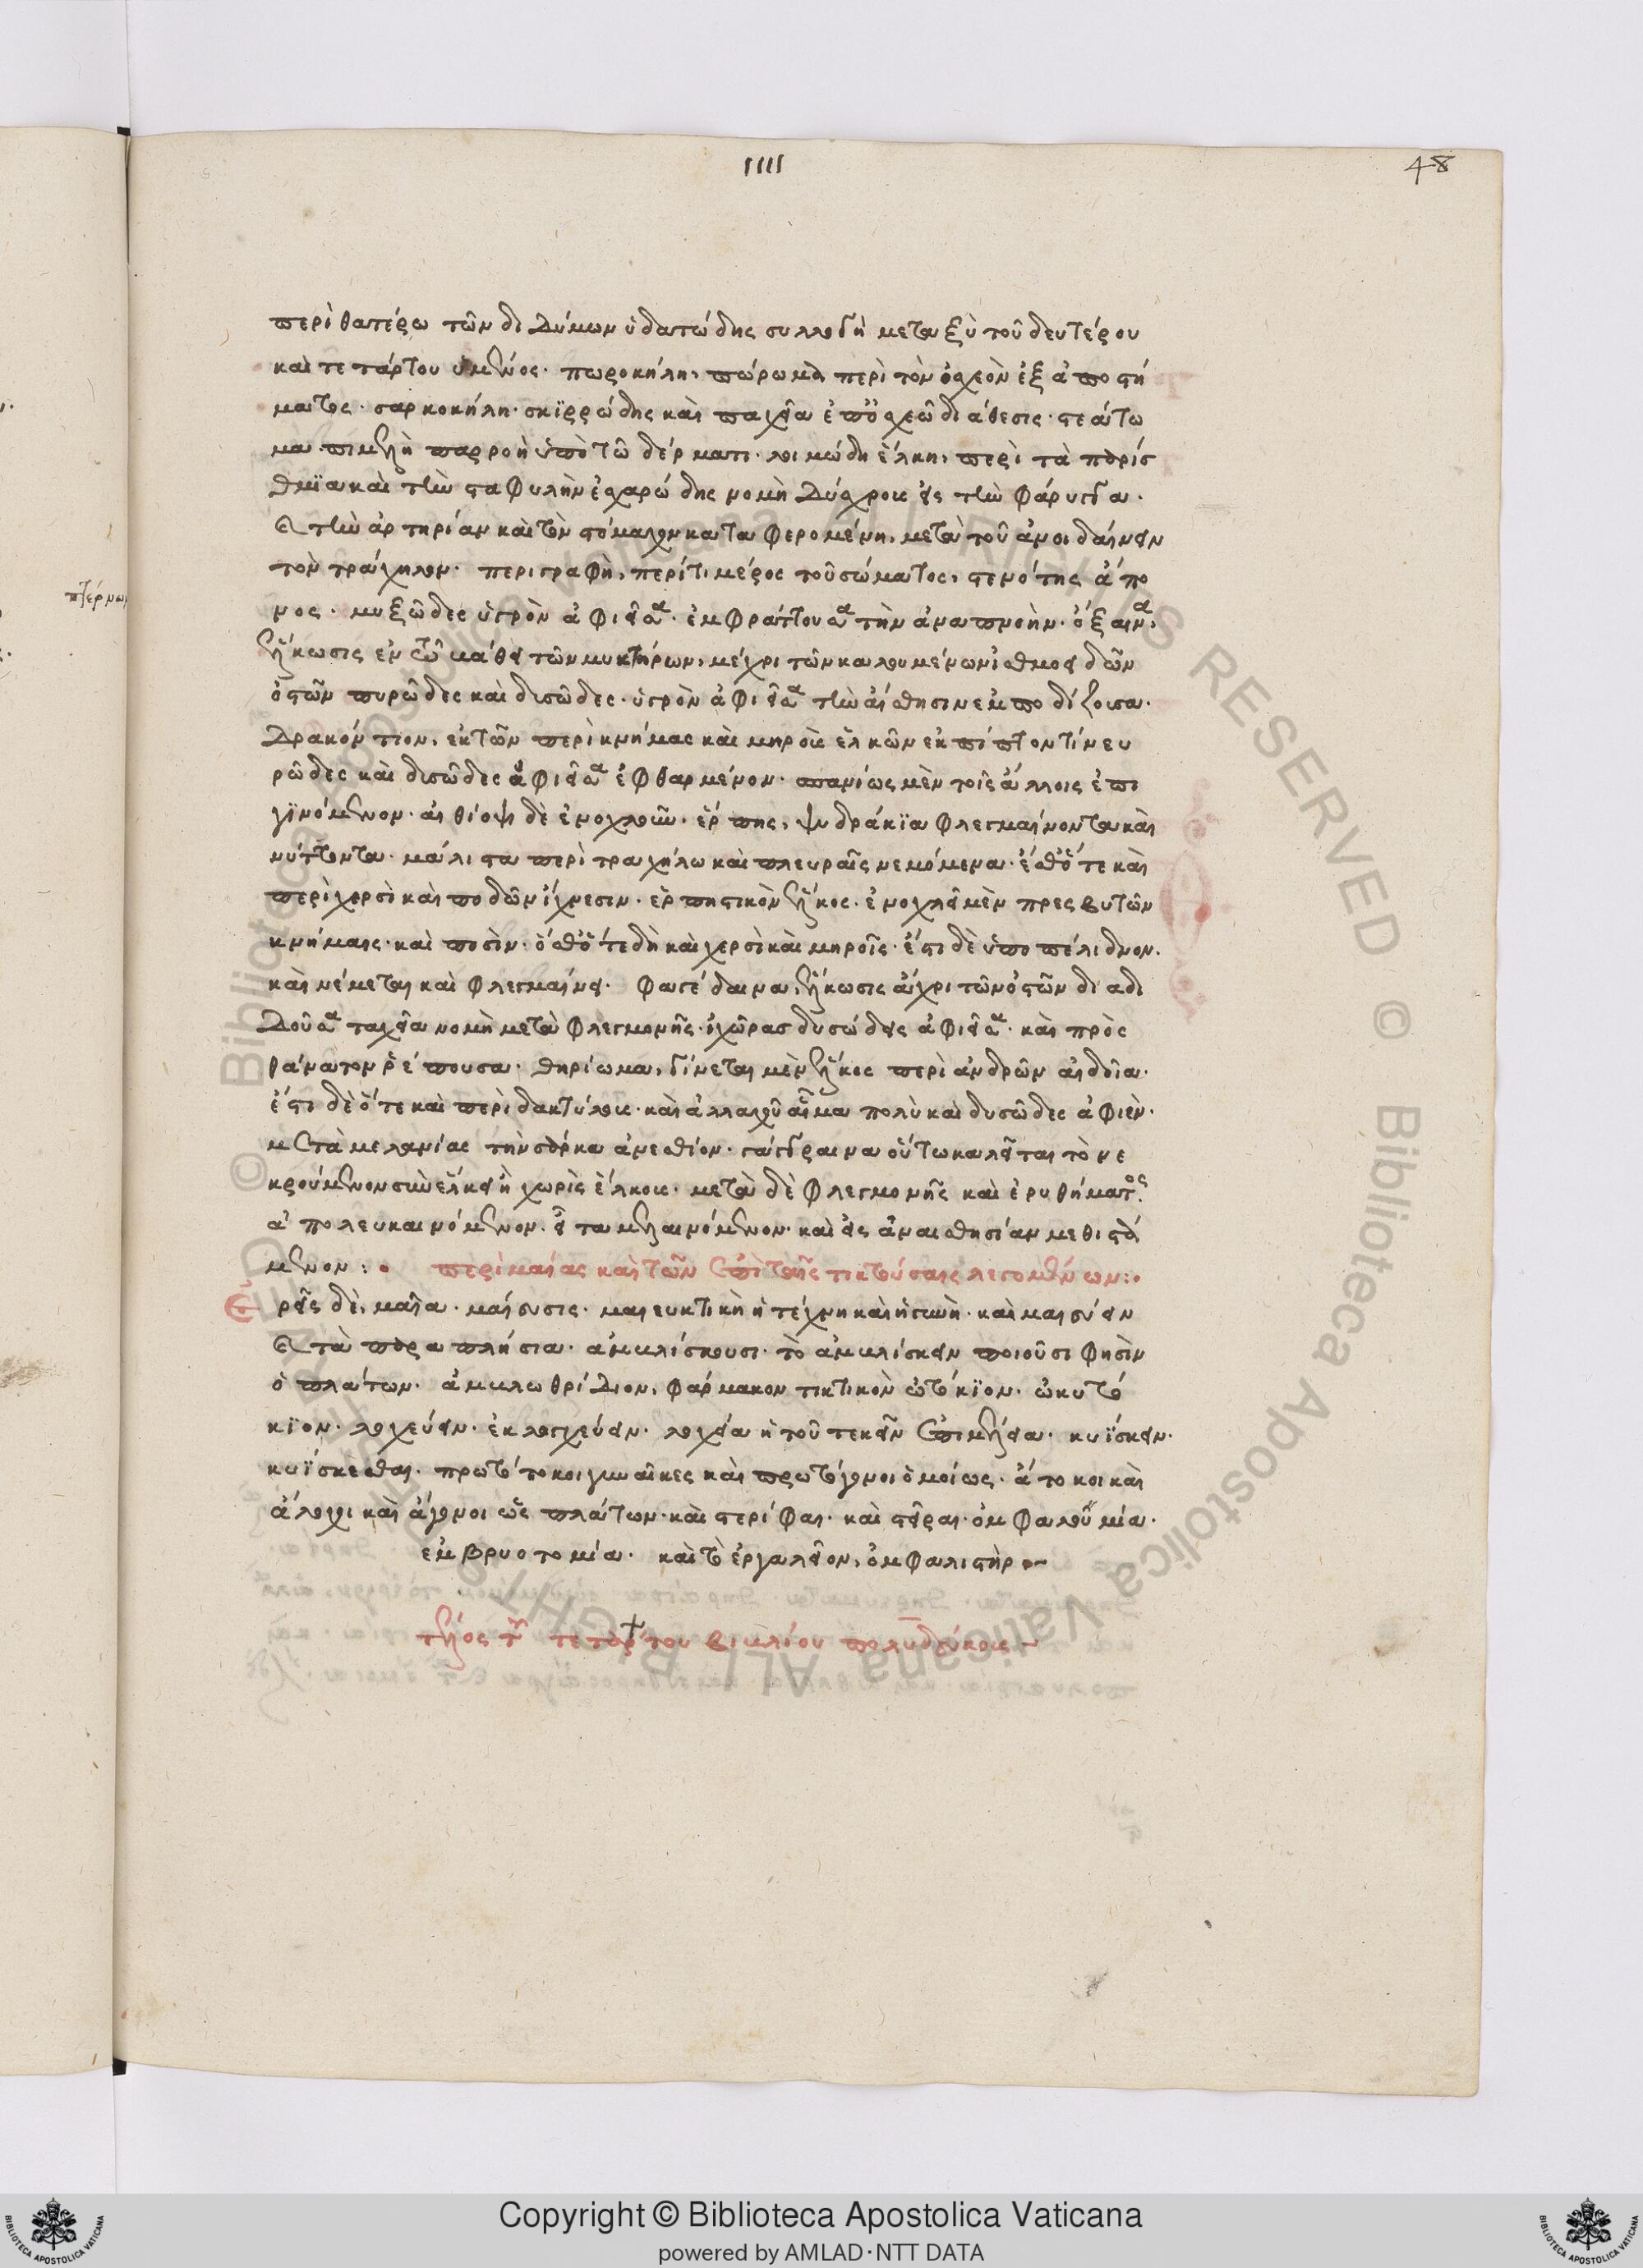 IIII
48
περὶ θατέρω τῶν διδύμων ὑδατώδης συλλογὴ μεταξὺ τοῦ δευτέρου
καὶ τετάρτου ὑμένος· πωροκήλη, πώρωμα περὶ τὸν ὀσχεὸν ἐξ ἀποστή
ματος· σαρκοκήλη· σκϊρρώδης καὶ παχεῖα ἐπ ὀσχεῶ διάθεσις· στεάτω
μα· πιμελὴ παρροὴ ὑπὸ τῶ δέρματι· λοιμώδη ἕλκη, περὶ τὰ παρίσ
θμϊα καὶ τὴν σταφυλὴν ἐσχαρώδης νομὴ δύσχρους εἰς τὴν φάρυγγα·
καὶ τὴν ἀρτηρίαν καὶ τὸν στόμαχον καταφερομένη, μετὰ τοῦ ἀνοιδαίνειν
τὸν τράχηλον· περιγραφὴ, περί τι μέρος τοῦ σώματος, στενότης ἄπο
νος· μυξῶδες ὑγρὸν ἀφιεῖσα· ἐμφράττουσα τὴν ἀναπνοήν· ὄξαινα,
ἕλκωσις ἐν τῶ βάθει τῶν μυκτήρων, μέχρι τῶν καλουμένων ἰσθμοειδῶν
ὀστῶν πυρῶδες καὶ δυσῶδες· ὑγρὸν ἀφιεῖσα τὴν αἴσθησιν ἐμποδίζουσα·
δρακόντιον, ἐκ τῶν περὶ κνήμας καὶ μηροὺς ἑλκῶν ἐκπίπτον τί νευ
ρῶδες καὶ δυσῶδες ἀφιεῖσα ἐφθαρμένον· σπανίως μὲν τοῖς ἄλλοις ἐπι
γϊνόμενον· αἰθίοψι δὲ ἐνοχλοῦν· ἕρπης, ψυδράκϊα φλεγμαίνοντα καὶ
νύττοντα· μάλιστα περὶ τραχήλω καὶ πλευραῖς νεμόμενα· ἔσθ ὅτε καὶ
περὶ χερσὶ καὶ ποδῶν ἴχνεσιν· ἑρπηστικὸν ἕλκος· ἐνοχλεῖ μὲν πρεσβυτῶν
κνήμαις· καὶ ποσίν· ἔσθ ὅτε δὴ καὶ χερσὶ καὶ μηροῖς· ἔστι δὲ ὑποπέλιδνον.
καὶ νέμεται καὶ φλεγμαίνει· φαγέδαινα, ἕλκωσις ἄχρι τῶν ὀστῶν διαδι
δοῦσα ταχεῖα νομὴ μετὰ φλεγμονῆς· ἰχῶρας δυσώδεις ἀφιεῖσα· καὶ πρὸς
θάνατον ῥέπουσα· θηρίωμα, γίνεται μὲν ἕλκος περὶ ἀνδρῶν αἰδοῖα·
ἔστι δὲ ὅτε καὶ περὶ δακτύλους· καὶ ἀλλαχοῦ αἷμα πολὺ καὶ δυσῶδες ἀφιὲν·
μετὰ μελανίας τὴν σάρκα ἀνεσθίον· γάγγραινα οὕτω καλεῖται τὸ νε
κρούμενον σὺν ἕλκει ἢ χωρὶς ἕλκους· μετὰ δὲ φλεγμονῆς καὶ ἐρυθήματος
ἀπολευκαινόμενον· εἶτα μελαινόμενον· καὶ εἰς ἀναισθησίαν μεθιστά
μενον:· περὶ μαίας καὶ τῶν ἐπὶ ταῖς τικτούσαις λεγομένων:·
ἐρεῖς δὲ, μαῖα· μαίευσις· μαιευτικὴ ἡ τέχνη καὶ ἡ γυνὴ· καὶ μαιεύειν
καὶ τὰ παραπλήσια· ἀμβλίσκουσι· τὸ ἀμβλίσκειν ποιοῦσι φησὶν
ὁ πλάτων· ἀμβλωθρίδιον, φάρμακον τικτικὸν ὠτόκϊον· ὠκυτό
κϊον· λοχεύειν· ἐκλοχεύειν· λοχεία ἡ τοῦ τεκεῖν ἐπιμέλεια· κυΐσκειν·
κυΐσκεσθαι· πρωτότοκοι γυναῖκες καὶ πρωτόγονοι ὁμοίως· ἄτοκοι καὶ
ἄλοχοι καὶ ἄγονοι ὡς πλάτων· καὶ στερίφαι· καὶ στεῖραι· ὀμφαλοτομία·
ἐμβρυοτομία· καὶ τὸ ἐργαλεῖον, ὀμφαλιστήρ
τέλος τοῦ τετάρτου βιβλίου πολυδεύκους